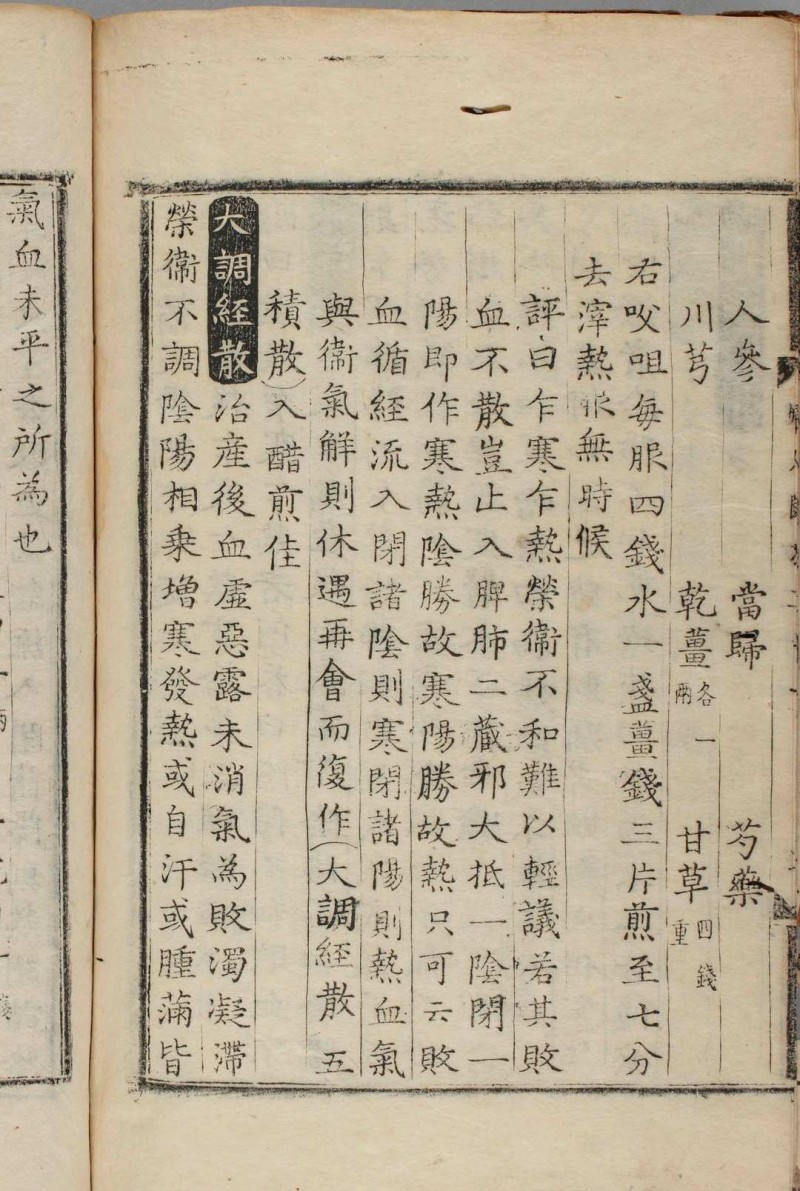 人參　當歸　芍藥
川芎　乾薑各一兩　甘草四錢重
右㕮咀每服四錢水一盞薑錢三片煎至七分
去滓熱服無時候
評曰乍寒乍熱榮衞不和難以輕議若其敗
血不散豈止入脾肺二藏邪大抵一陰閉一
陽即作寒熱陰勝故寒陽勝故熱只可云敗
血循經流入閉諸陰則寒閉諸陽則熱血氣
與衞氣解則休遇再會而復作(大調経散五
積散)入醋煎佳
大調経散治産後血虛惡露未消氣為敗濁凝滯
榮衞不調陰陽相乗增寒發熱或自汗或腫滿皆
氣血未平之所為也